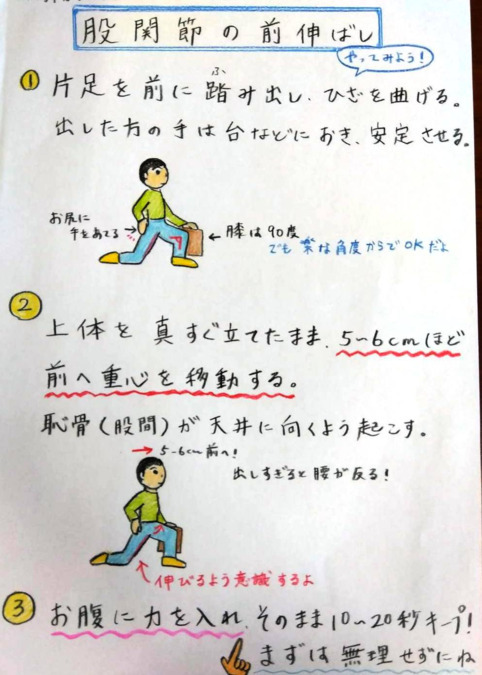 股関節の前伸ばし
やってみよう!
① 片足を前に踏み出し、ひざを曲げる。
ふ
出した方の手は台などにおき、安定させる。
お尻に
手をあてる→
←膝は90度
でも楽な角度からでOKだよ
② 上体を真すぐ立てたまま、5~6cmほど
前へ重心を移動する。
恥骨(股間)が天井に向くよう起こす。
→5~6cm前へ!
出しすぎると腰が反る!
伸びるよう意識するよ
③ お腹に力を入れ、そのまま10~20秒キープ!
まずは無理せずにね